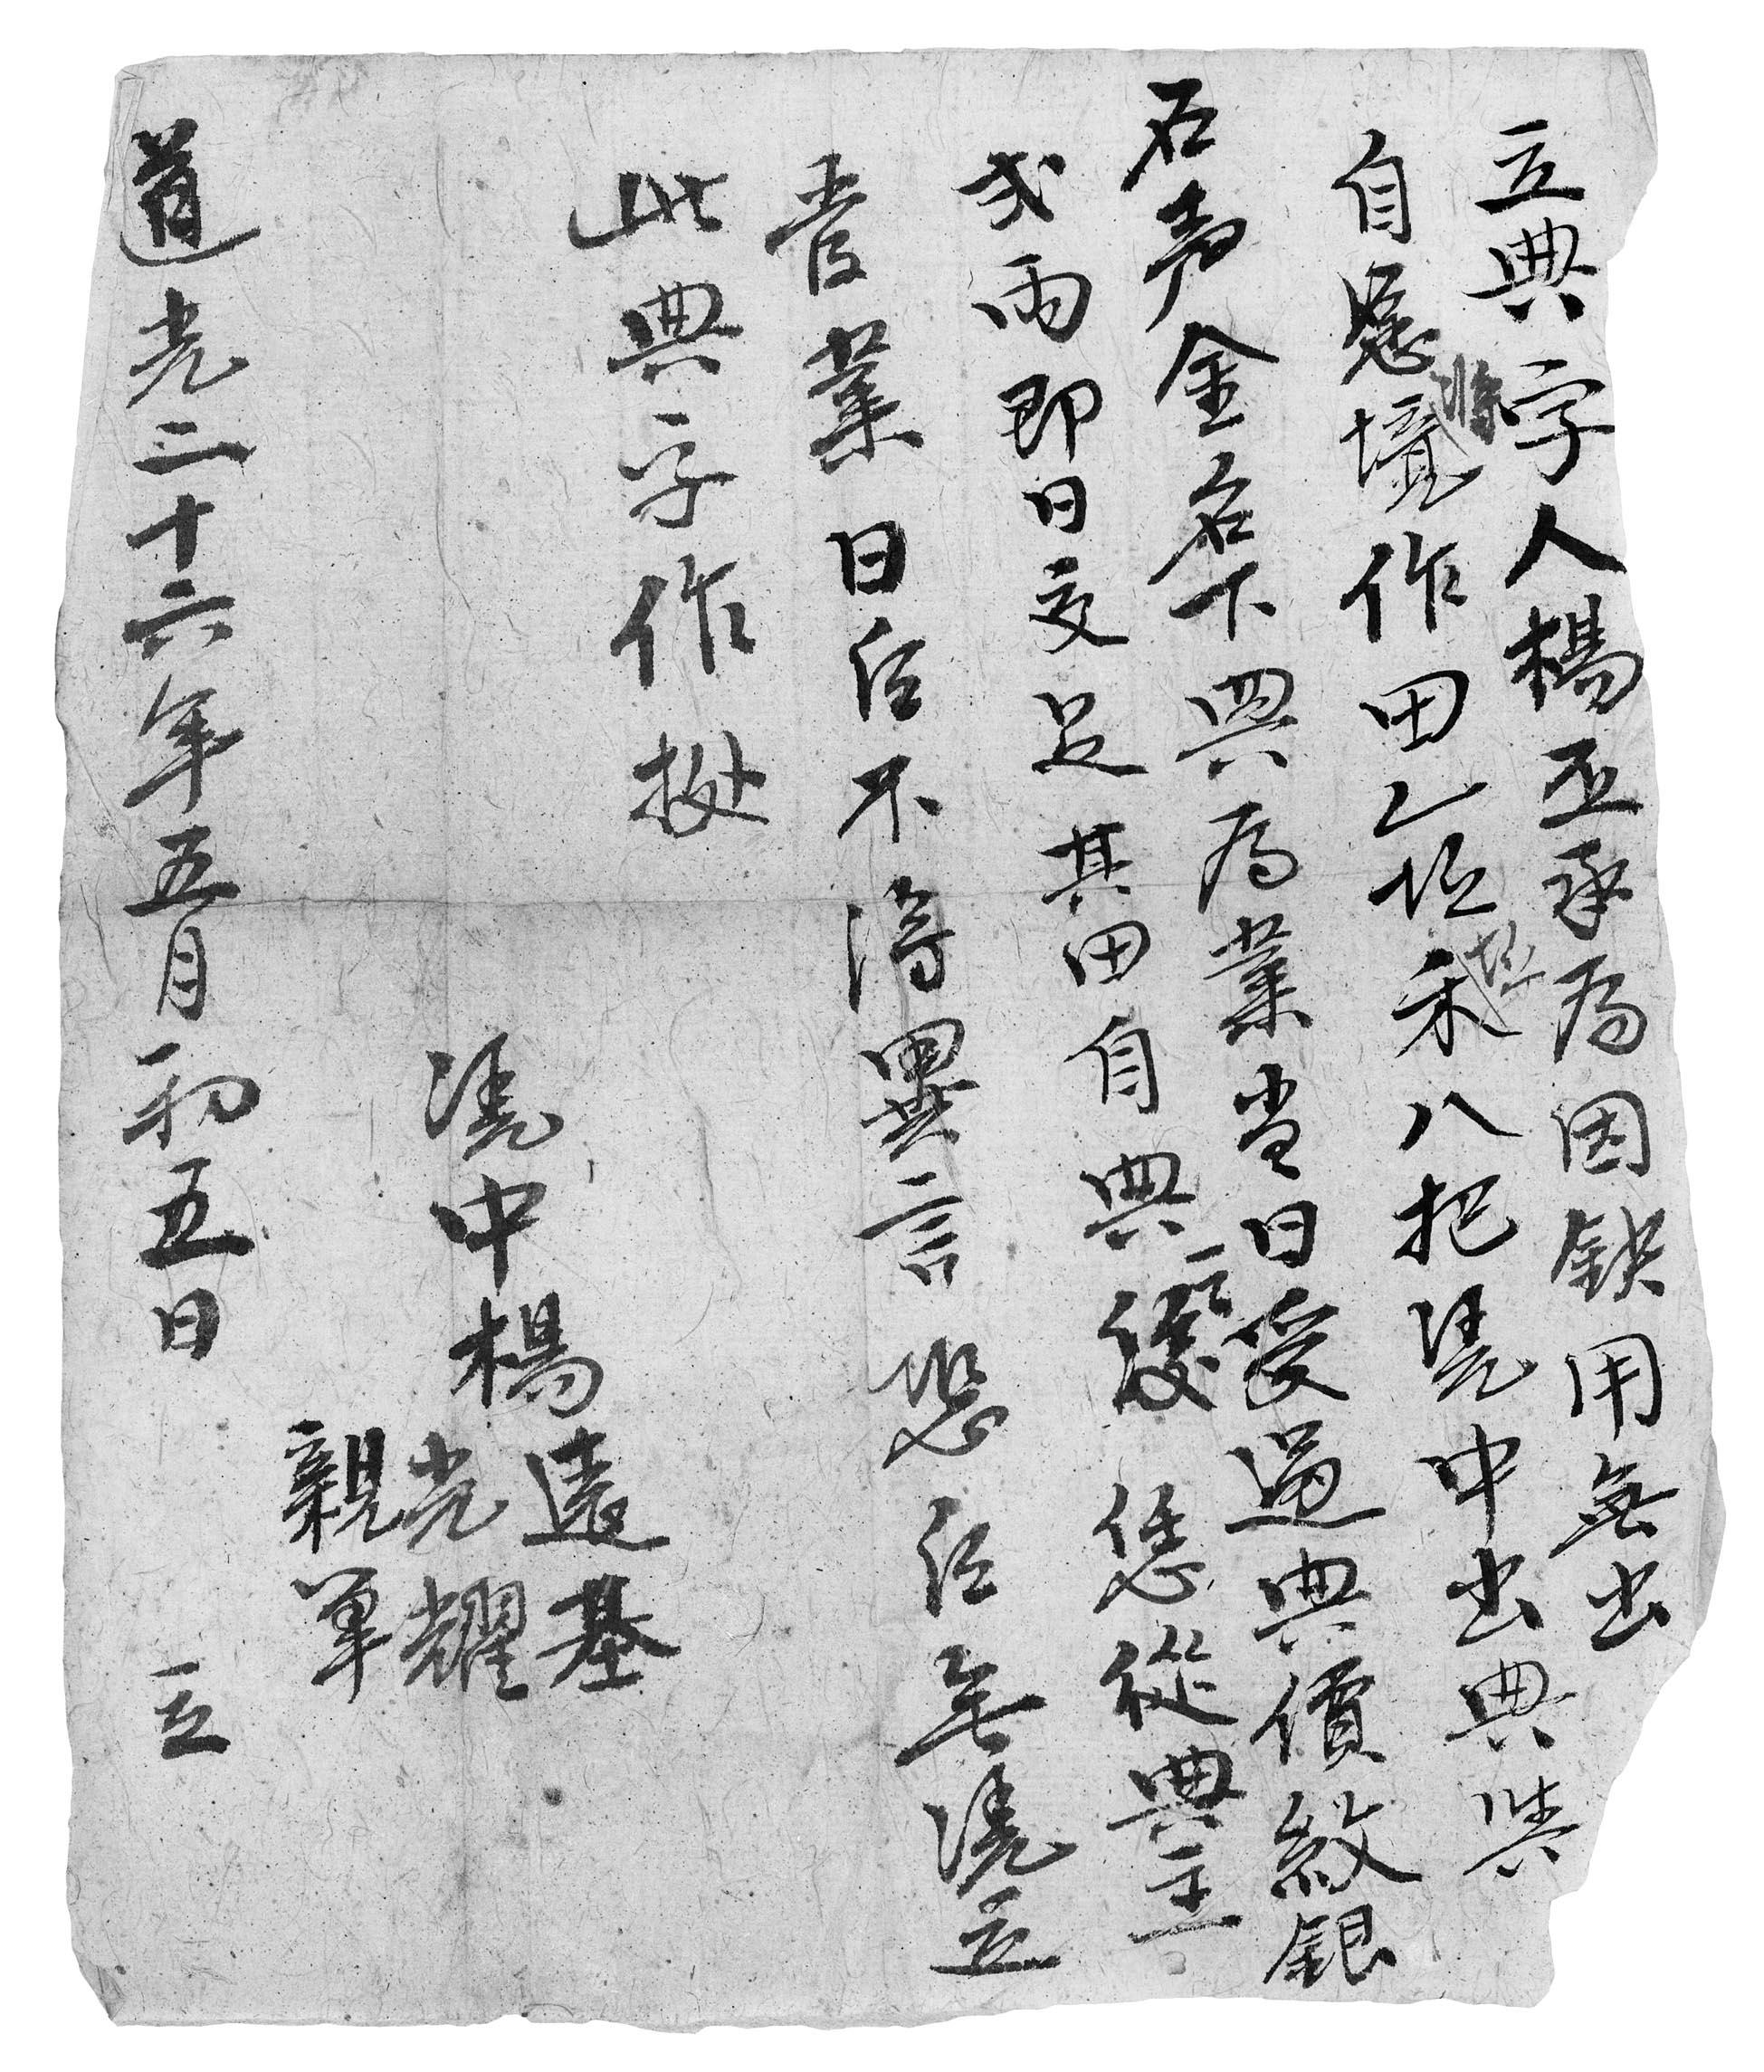 立典字人楊丕承為因缺用無出
自愿將境作田乚坵坵禾八把凴中出典與
石声金名下典為業當日受過典價紋銀
弍両即日交足其田自典后恁從典主
管業日后不淂異言恐后無凴立
此典字作㨿
凴中楊遠基
光耀
親筆
道光二十六年五月初五日 立